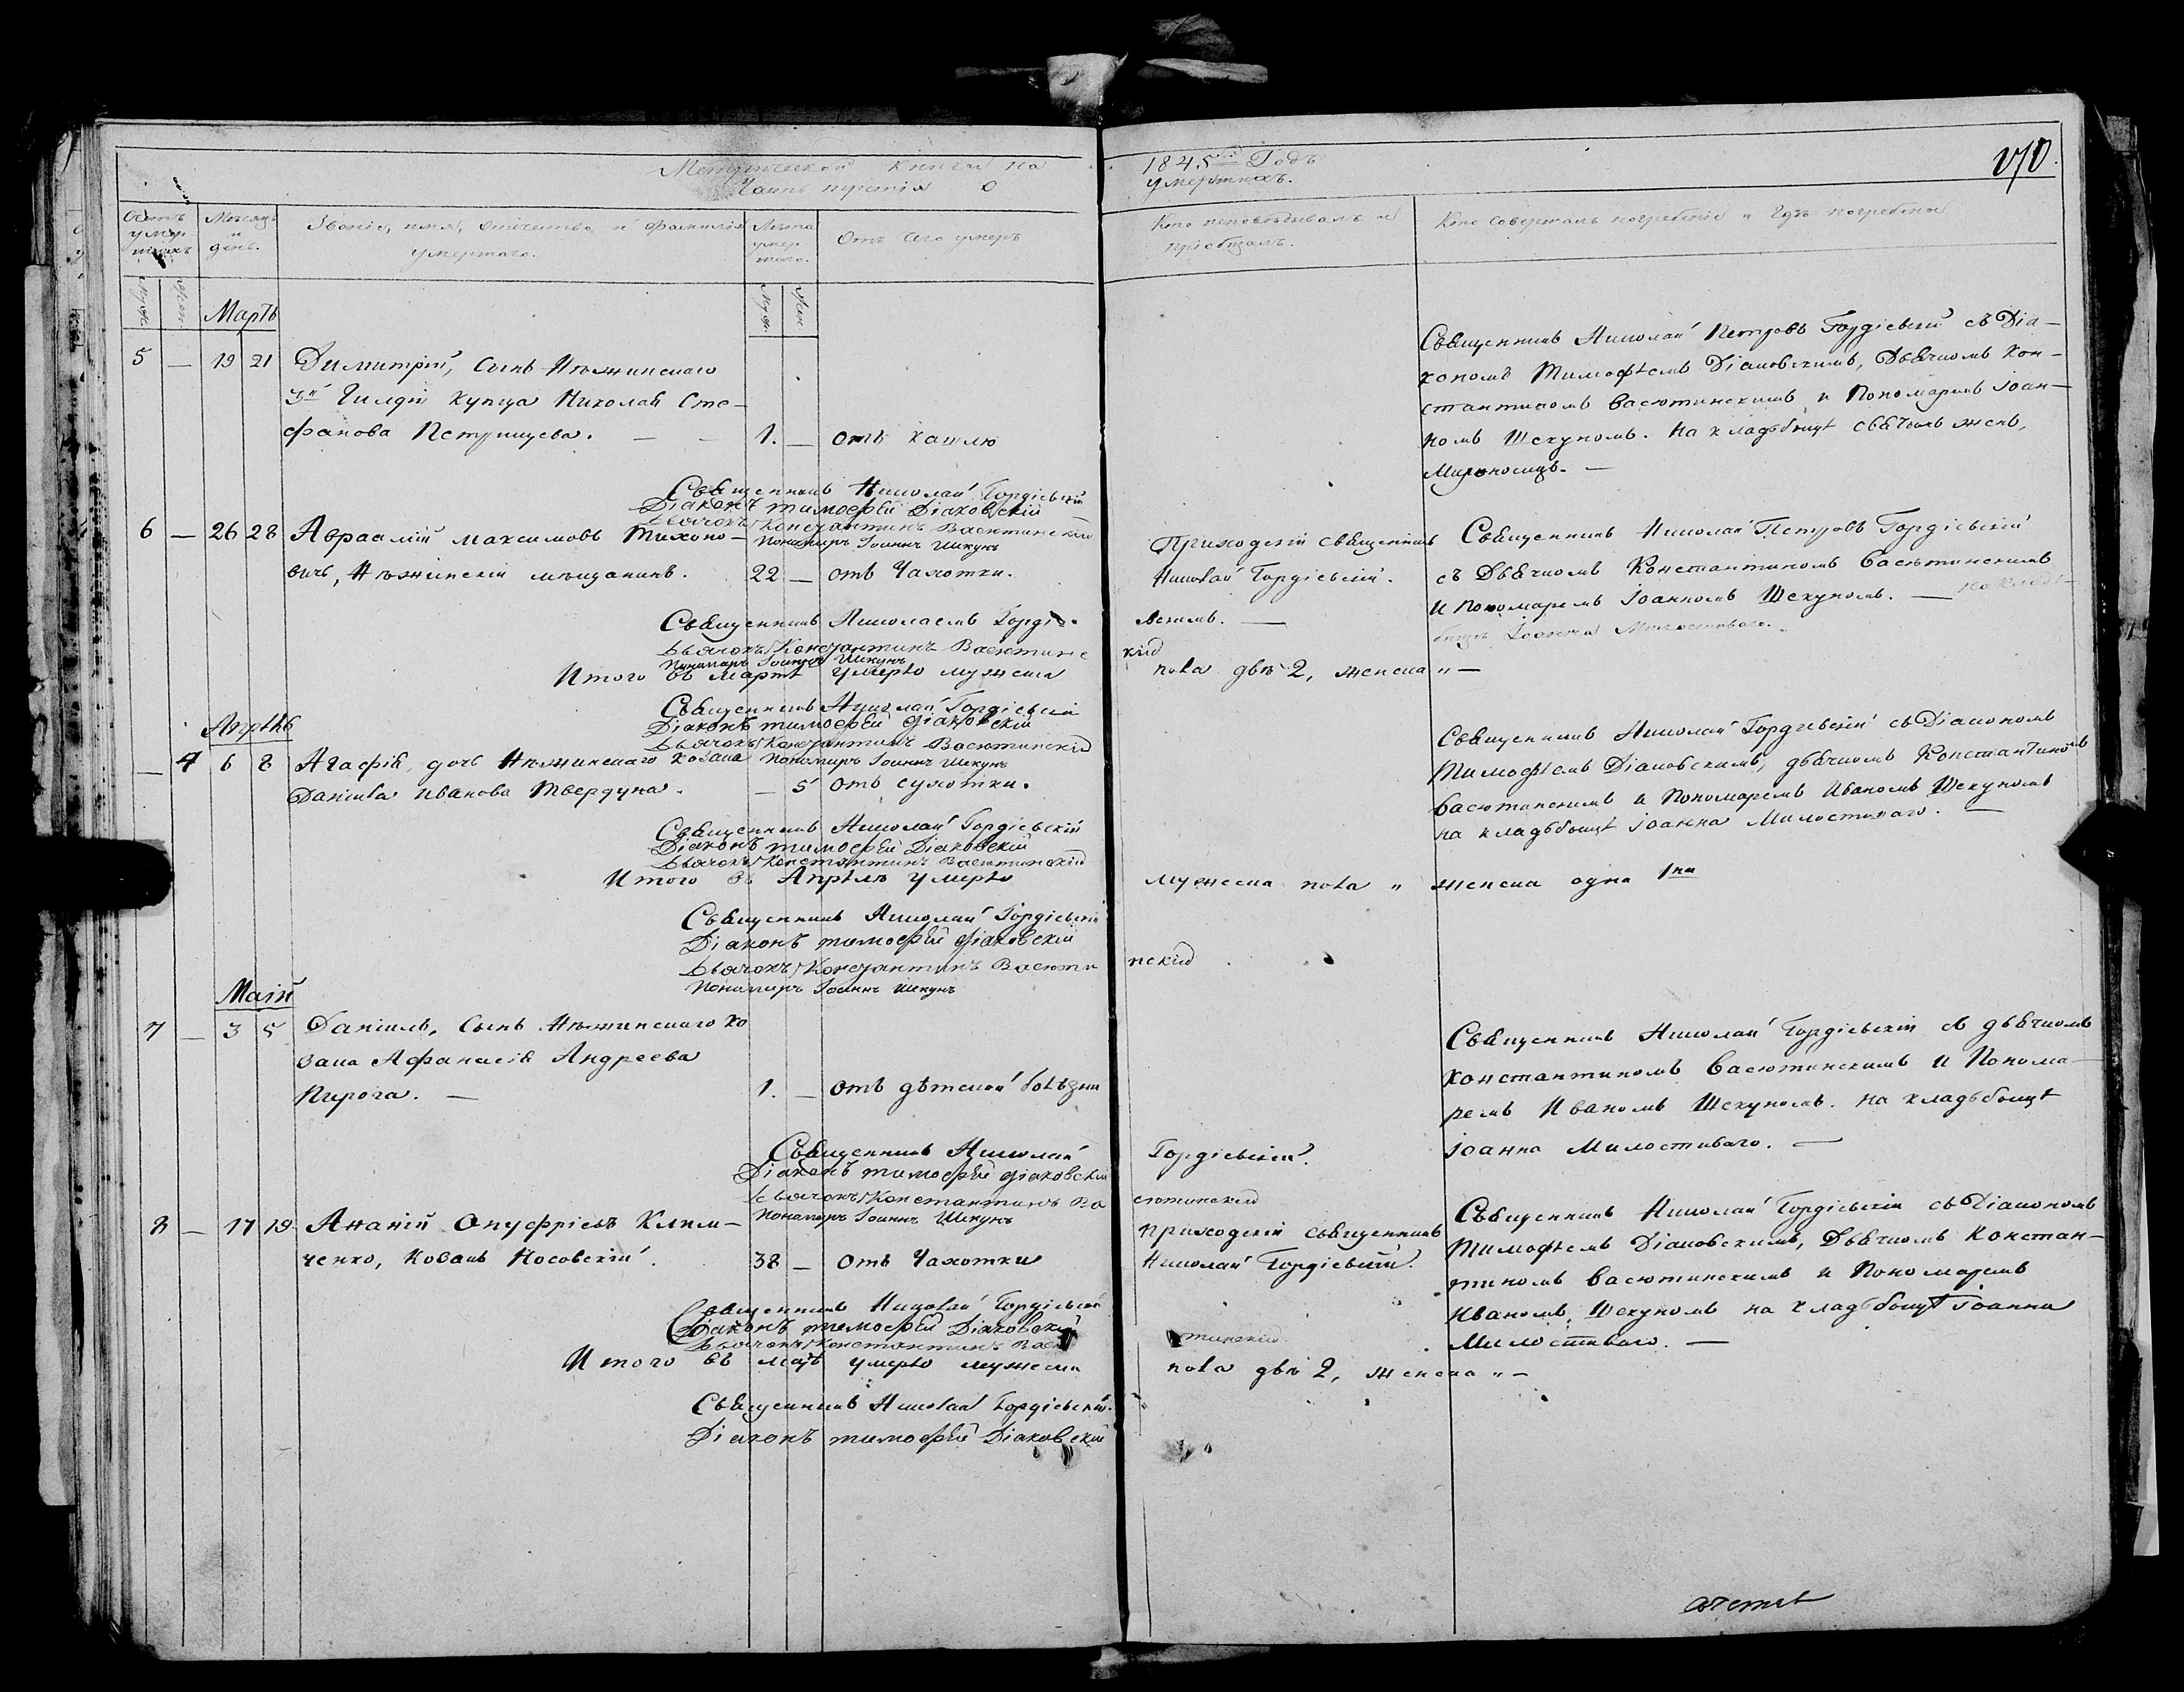 Метрической книги на 1845й Годъ
Часть третія о умершихъ.
Счетъ умершихъ
Мѣсяцъ и день.
Званіе, имя, отчество, и фамилія умершаго.
Лѣта умершаго.
Отъ чего умеръ
Кто исповѣдывалъ и пріобщалъ.
Кто совершалъ погребеніе и гдѣ погребены
Муж. Жен.
Муж. Жен.
Мартъ
5 — 19 21 Димитрій, Сынъ Нѣжинскаго
3й Гилдіи Купца Николая Сте-
фанова Петришцева. — — 1. — отъ кашлю
Священникъ Николай Петровъ Гордіевскій съ Діа-
кономъ Тимофѣемъ Діаковскимъ, Дьячкомъ Кон-
стантиномъ Васютинскимъ и Пономаремъ Іоан-
номъ Шекуномъ. На кладьбищѣ свѣтыхъ женъ,
Мироносицъ. —
Священникъ Николай Гордіевскій
Діаконъ тимофѣй Діаковскій
Дьячокъ Константинъ Васютинскій
Пономаръ Іоаннъ Шекунъ
6 — 26 28 Авраамій Максимовъ Тихоно-
вичъ, Нѣжинскій мѣщанинъ. 22 — отъ Чахотки.
Приходскій священникъ
Николай Гордіевскій.
Священникъ Николай Петровъ Гордіевскій
съ Дьячкомъ Константиномъ Васютинскимъ
и Пономаремъ Іоанномъ Шекуномъ. — на кладь-
бищѣ Іоанна Милостиваго.
Священникъ Николаемъ Гордіе- вскимъ. —
Дьячокъ Константинъ Васютинс кій
Пономаръ Іоаннъ Шекунъ
Итого въ Мартѣ умерло мужеска пола двѣ 2, женска „ —
Священникъ Николай Гордіевскій
Діаконъ тимофѣй Діаковскій
Дьячокъ Константинъ Васютинскій
Пономаръ Іоаннъ Шекунъ
Апрѣль
— 4 6 8 Агафія, дочь Нѣжинскаго Козака
Даніила Иванова Твердуна. — 5 отъ сухотки.
Священникъ Николай Гордіевскій съ Діакономъ
Тимофѣемъ Діаковскимъ, дьячкомъ Константиномъ
Васютинскимъ и Пономаремъ Иваномъ Шекуномъ
на кладьбищѣ Іоанна Милостиваго. —
Священникъ Николай Гордіевскій
Діаконъ тимофѣй Діаковскій
Дьячокъ Константинъ Васютинскій
Итого въ Апрѣлѣ умерло мужеска пола „ женска одна 1на
Священникъ Николай Гордіевскій
Діаконъ тимофѣй Діаковскій
Дьячокъ Константинъ Васюти нскій
Пономаръ Іоаннъ Шекунъ
Маій
7 — 3 5 Даніилъ, Сынъ Нѣжинскаго Ко
зака Афанасія Андреева
Пирога. — 1. — отъ дѣтской болѣзни
Священникъ Николай Гордіевскій съ дьячкомъ
Константиномъ Васютинскимъ и Понома-
ремъ Иваномъ Шекуномъ. На кладьбищѣ
Іоанна Милостиваго. —
Священникъ Николай Гордіевскій.
Діаконъ тимофѣй Діаковскій
Дьячокъ Константинъ Ва сютинскій
Пономаръ Іоаннъ Шекунъ
8 — 17 19 Ананій Онуфріевъ Клим-
ченко, Козакъ Носовскій. 38 — отъ Чахотки
Приходскій священникъ
Николай Гордіевскій.
Священникъ Николай Гордіевскій съ Діакономъ
Тимофѣемъ Діаковскимъ, Дьячкомъ Констан-
тиномъ Васютинскимъ и Пономаремъ
Иваномъ Шекуномъ на кладьбищѣ Іоанна
Милостиваго. —
Священникъ Николай Гордіевскій
Діаконъ тимофѣй Діаковскій
Дьячокъ Константинъ Васю тинскій
Итого въ маѣ умерло мужеска пола двѣ 2, женска „ —
Священникъ Николай Гордіевскій.
Діаконъ тимофѣй Діаковскій